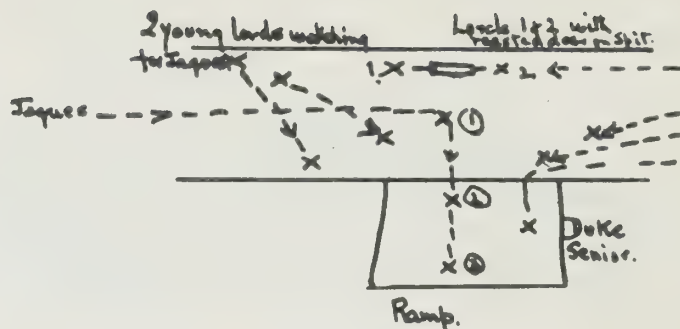 2 young lords watching
for Jaques
Lords 1 & 2 with
roasted deer on spit.
1.
2.
Jaques
①
②
③
Duke
Senior.
Ramp.